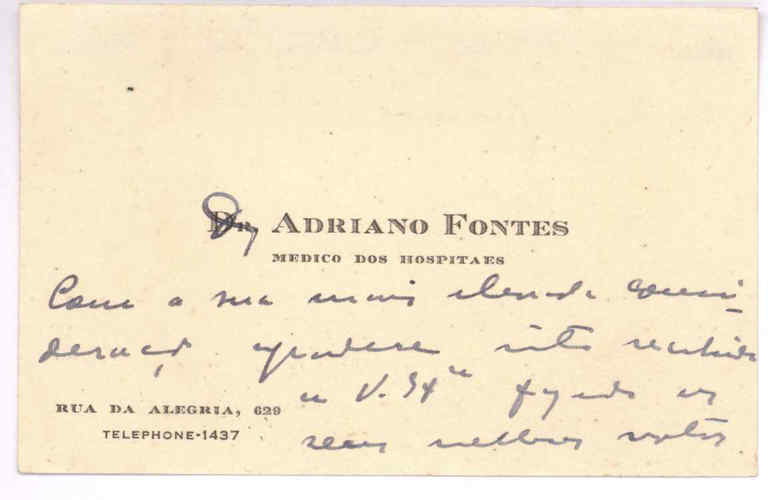 Dr. ADRIANO FONTES
MEDICO DOS HOSPITAES
Com a sua mais elevada consi-
deração agradece muito
a V. Exª os
seus melhores votos
RUA DA ALEGRIA, 629
TELEPHONE-1437